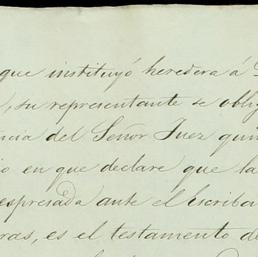 que instituyó heredera á
, su representante se oblig
ncia del Señor Juez quin
io en que declare que la
espresada ante el Escriba
ras, es el testamento de